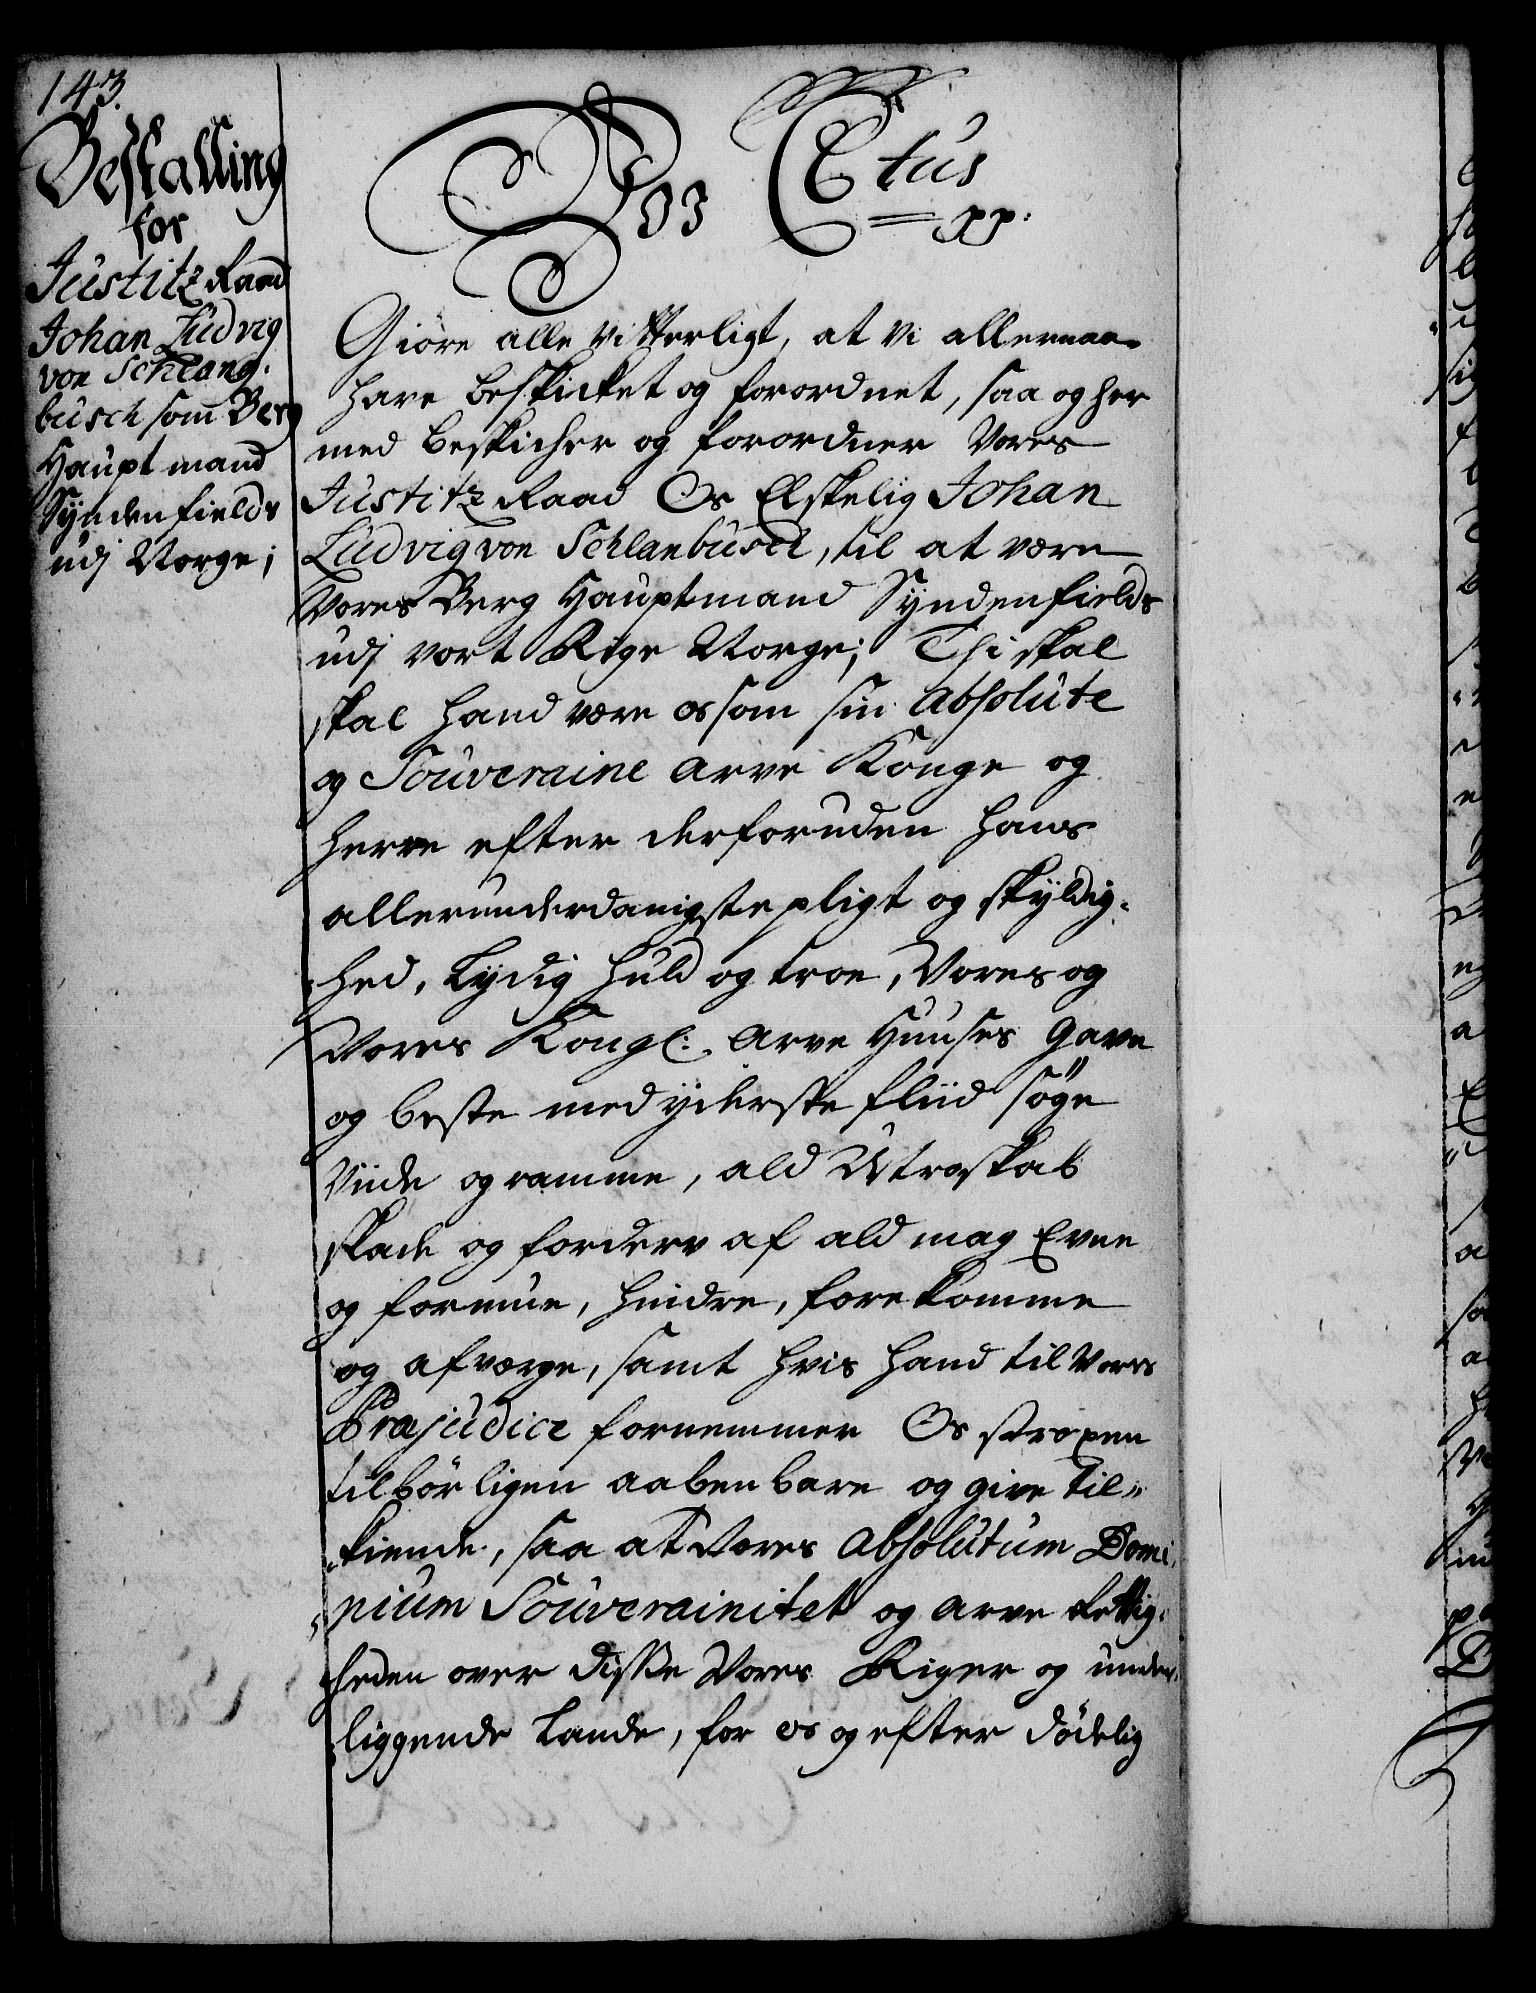 143.
Bestalling
for
Justitz Raad
Johan Ludvig
von Schlang-
busch som Berg
Hauptmand
Syndenfields
udj Norge;
Vos CEtus
pp:
Giöre alle vitterligt, at vi allernaa-
have beskicket og forordnet, saa og her
med beskicher og forordner Vores
Justitz Raad Os Elskelig Johan
Ludvig von Schlanbusch, til at være
Vores Berg Hauptmand Syndenfields
udj vort Rige Norge; Thi skal
skal hand være os som sin absolute
og Souveraine Arve Konge og
Herre efter derforuden hans
allerunderdanigste pligt og skyldig-
hed, Lydig huld og troe, Vores og
Vores Kongl: Arve Huuses Gavn
og beste med yderste fliid søge
Viide og ramme, ald Utroskab
skade og forderv af ald mag Evne
og formue, hindre, forekomme
og afværge, samt hvis hand til Vores
Præjudice fornemmer Os stroxen
tilbørligen aabenbare og give til-
kiende, saa at Vores absolutum Domi-
nium Souverainitet og Arve Rettig-
heden over disse Vores Riger og under-
liggende Lande, for os og efter dødelig